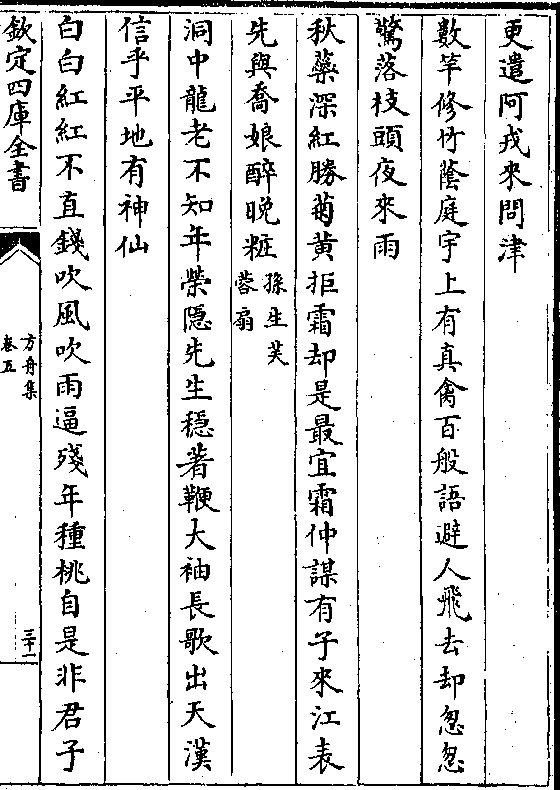 更遣阿戎來問津
數竿修竹蔭庭宇上有真禽百般語避人飛去却忽忽
驚落枝頭夜來雨
秋蘂深紅勝菊黄拒霜却是最宜霜仲謀有子來江表
先與喬娘醉晚粧孫生芙
蓉扇
洞中龍老不知年榮隠先生穩著鞭大袖長歌出天漢
信乎平地有神仙
白白紅紅不直錢吹風吹雨逼殘年種桃自是非君子
欽定四庫全書
方舟集
卷五
三十一